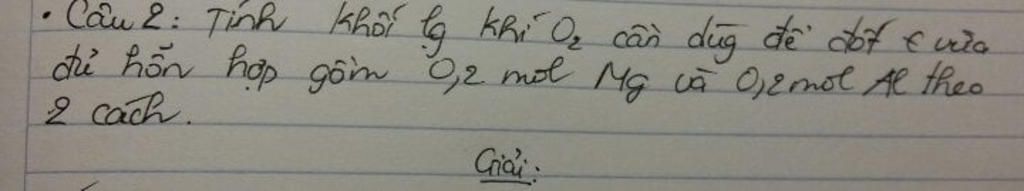 • Câu 2: Tính khối lg khí O₂ cần dùg để đốt € vừa
đủ hỗn hợp gồm 0,2 mol Mg và 0,2 mol Al theo
2 cách.
Giải: